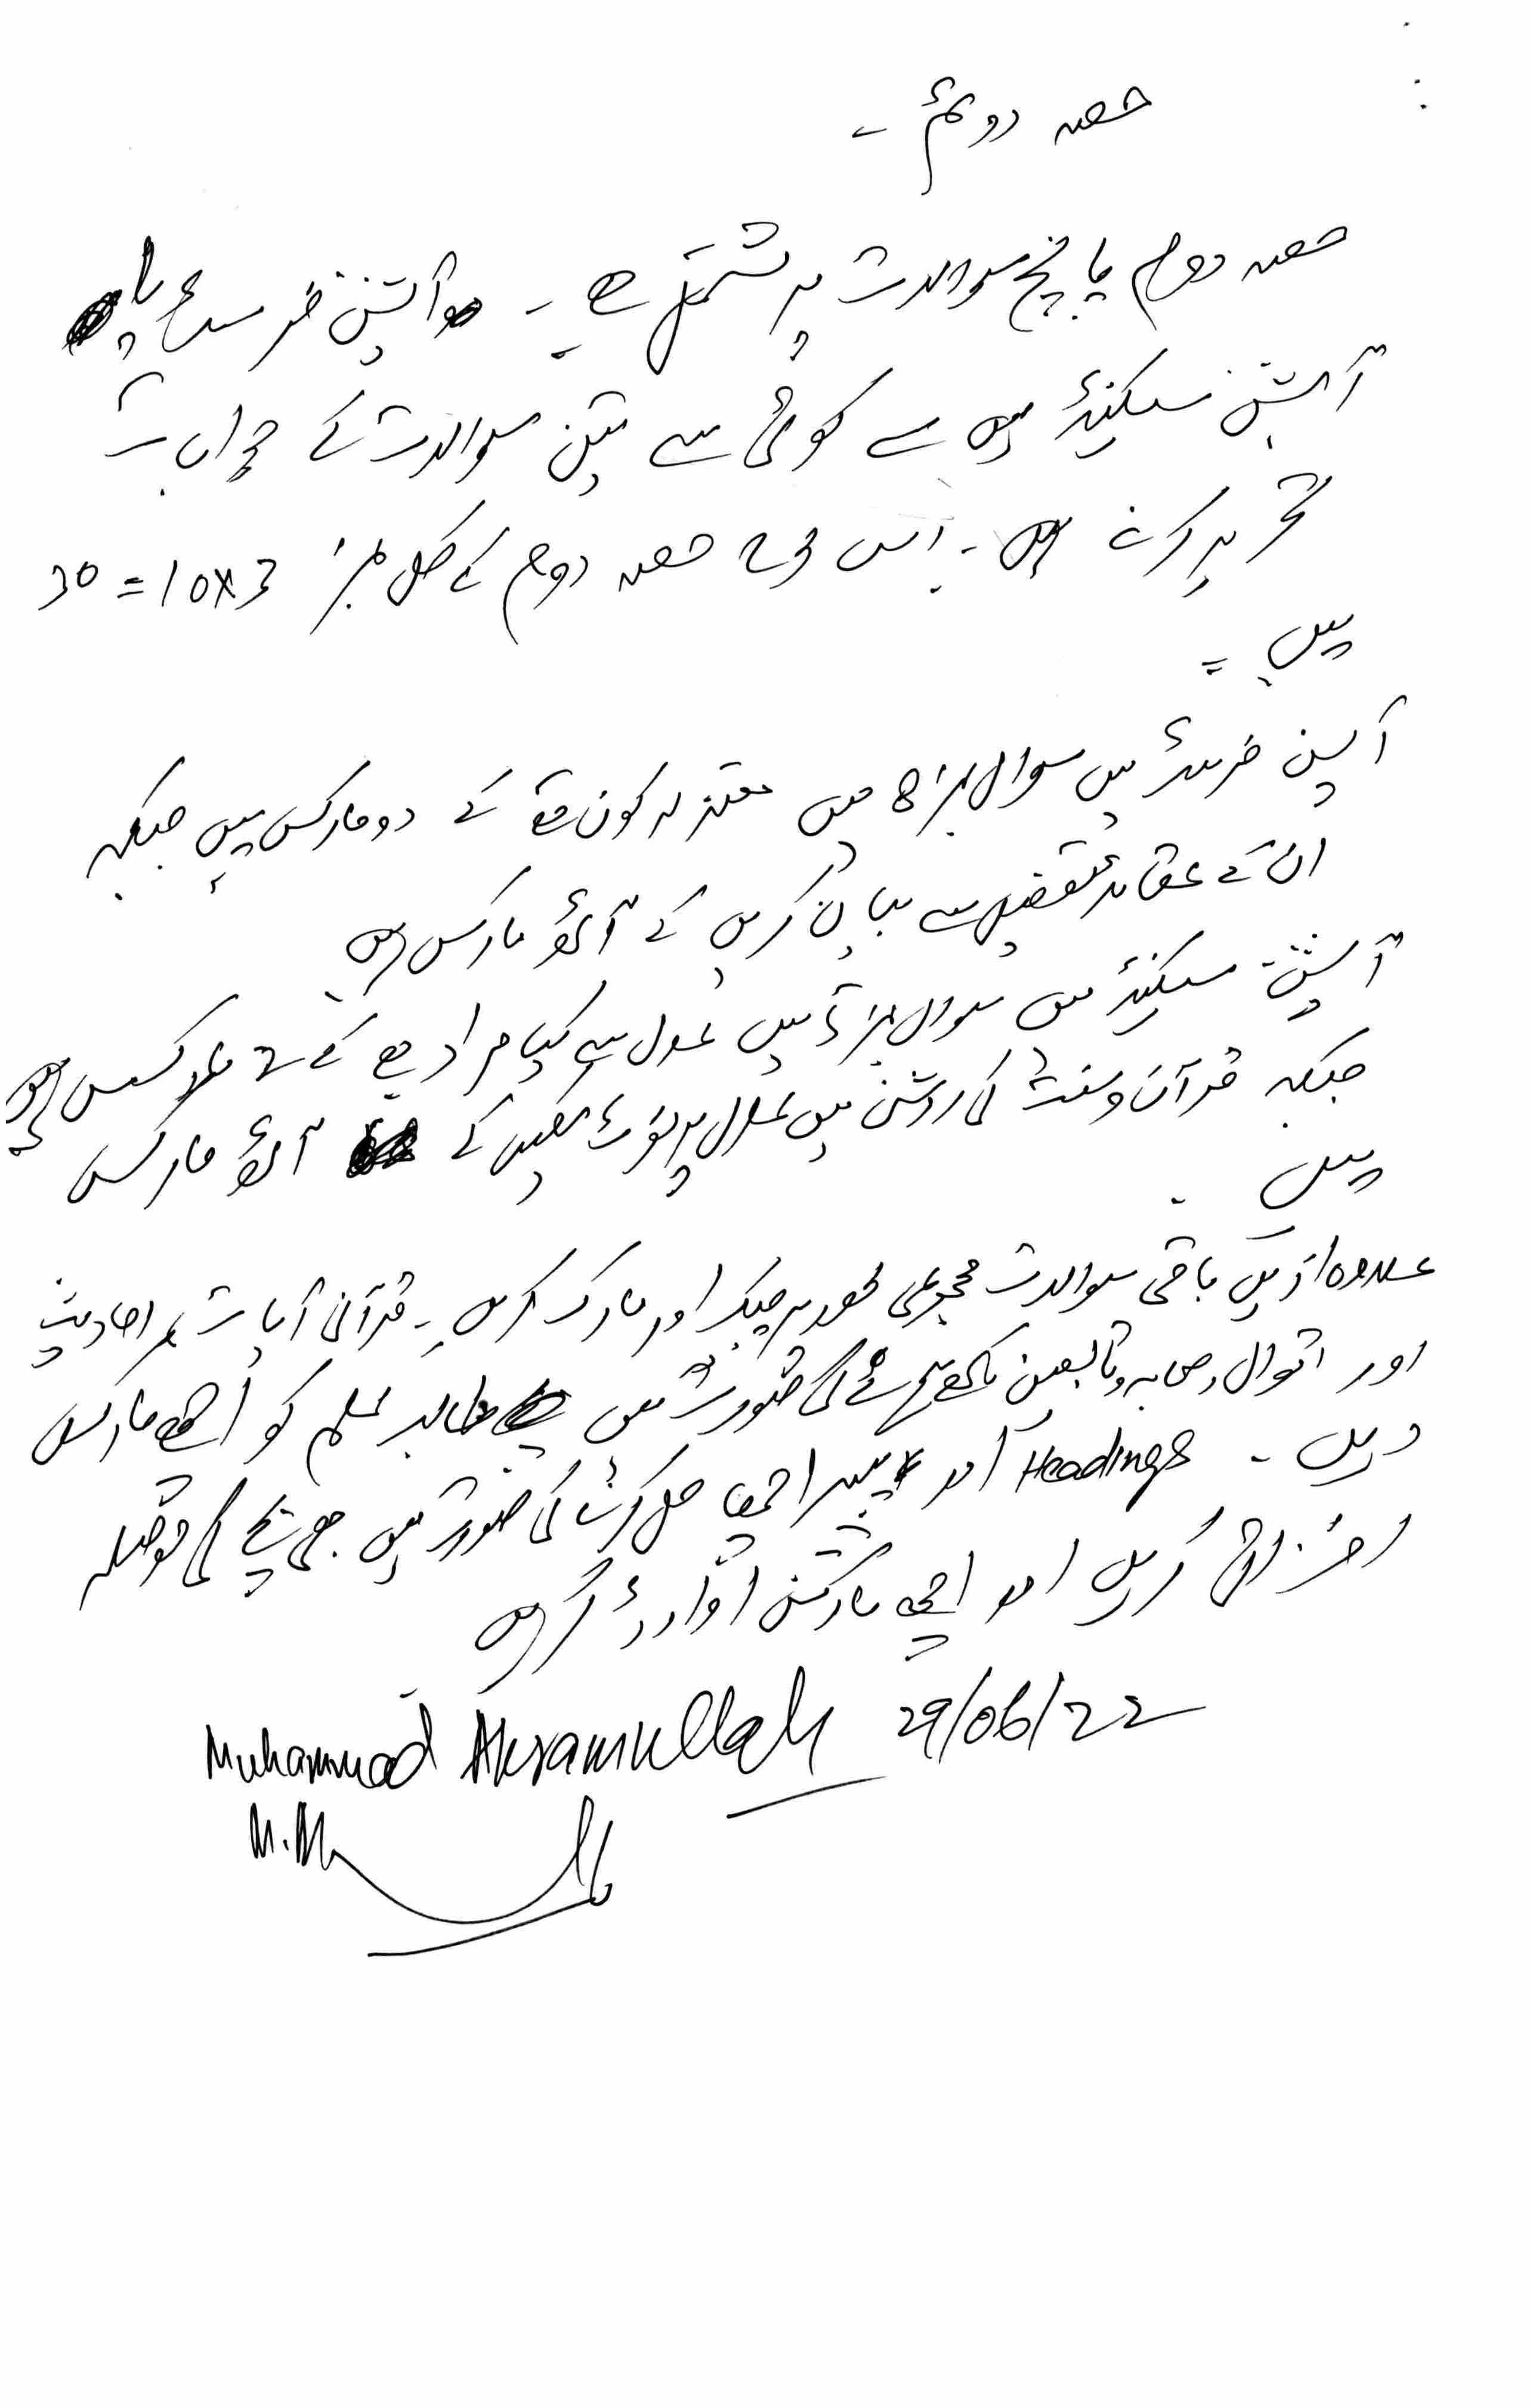 حصہ دوئم ۔
حصہ دوم پانچ سوالات پر مشتمل ہے ۔ آپشن فرسٹ یا
آپشن سیکنڈ میں سے کوئی سے تین سوالات کے جوابات
تحریر کرنے ہیں ۔ اس حصہ دوم کے کل نمبرز 30 = 10x3
ہیں ۔
آپشن فرسٹ میں سوال نمبر 5 میں معتزلہ کون تھے کے دو مارکس ہیں جبکہ
ان کے عقائد تفصیل سے بیان کریں کے آٹھ مارکس ہیں
آپشن سیکنڈ میں سوال نمبر میں عدل سے کیا مراد ہے کے 2 مارکس ہیں
جبکہ قرآن و سنت کی روشنی میں عدل پر نوٹ لکھیں کے آٹھ مارکس
ہیں ۔
علاوہ ازیں باقی سوالات مجموعی طور پر چیک اور مارک کریں ۔ قرآنی آیات، احادیث
اور اقوال صحابہ و تابعین لکھے جانے کی صورت میں طالب علم کو اچھے مارکس
دیں ۔ Headings اور پیپر اچھا حل کرنے کی صورت میں بھی بچے کی حوصلہ
افزائی کریں اور اچھے مارکس ایوارڈ کریں
Muhammad Akramullah 29/06/22